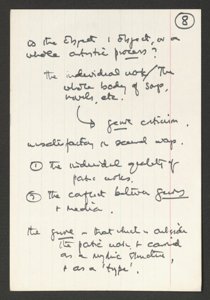 8
is the object : object, or a
whole artistic process?
the individual work / The
whole body of
work, etc.
genre criticism.
unsatisfactory in several ways.
① the individual quality of
works.
② the conflict between genres
+ media.
the genre = that which is outside
the work +
as a mythic structure,
+ as a 'type'.